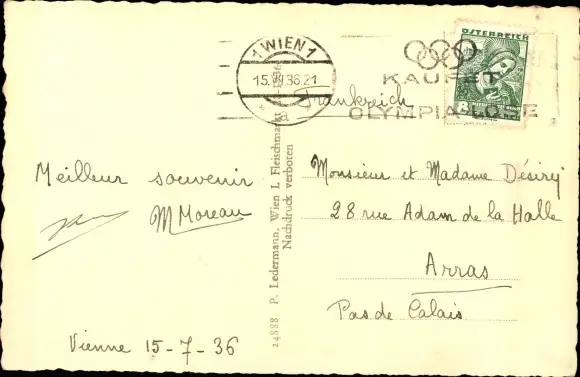 1 WIEN 1
15.VII.36.21
a
KAUFET
OLYMPIA-LOSE
ÖSTERREICH
8
Frankreich
Meilleur souvenir
M Moreau
Vienne 15-7-36
24888 P. Ledermann, Wien I, Fleischmarkt
Nachdruck verboten
Monsieur et Madame Désiry
28 rue Adam de la Halle
Arras
Pas de Calais